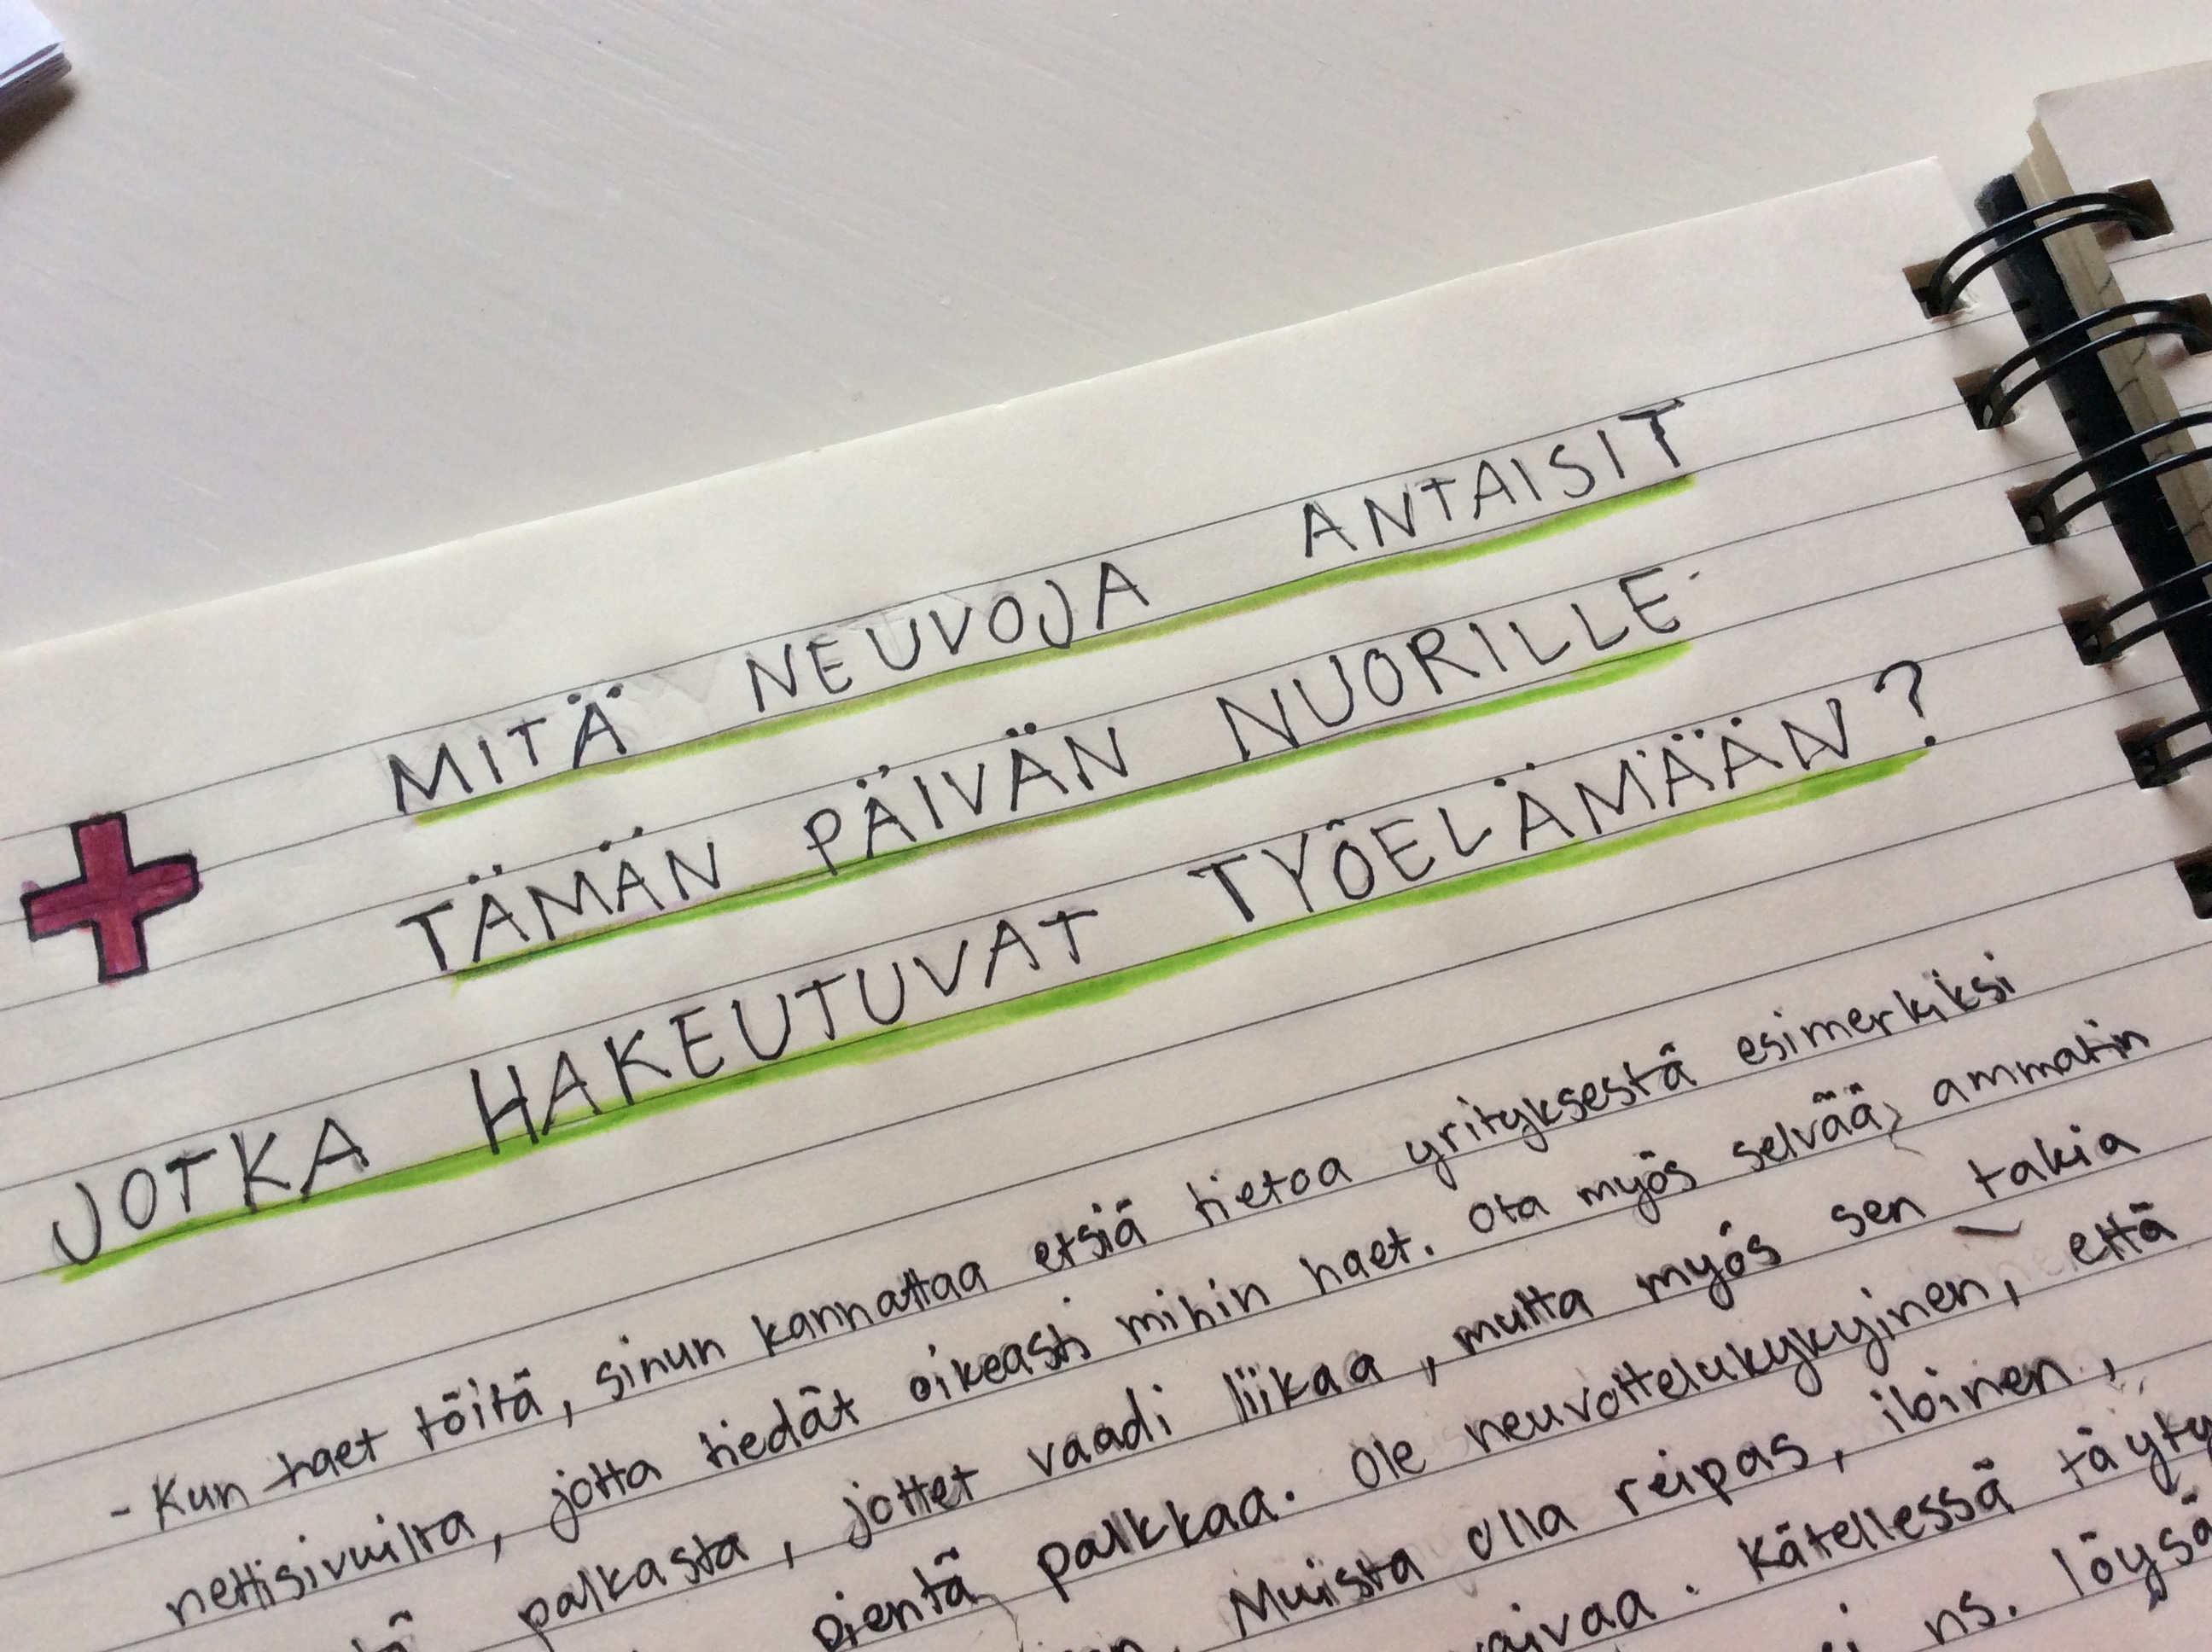 MITÄ NEUVOJA ANTAISIT
TÄMÄN PÄIVÄN NUORILLE
JOTKA HAKEUTUVAT TYÖELÄMÄÄN?
- Kun haet töitä, sinun kannattaa etsiä tietoa yrityksestä esimerkiksi
nettisivuilta, jotta tiedät oikeasti mihin haet. Ota myös selvää ammatin
palkasta, jottet vaadi liikaa, mutta myös sen takia
että
pientä palkkaa. Ole neuvottelukykyinen,
Muista olla reipas, iloinen,
vaivaa. Kätellessä täyty
ns. löysä